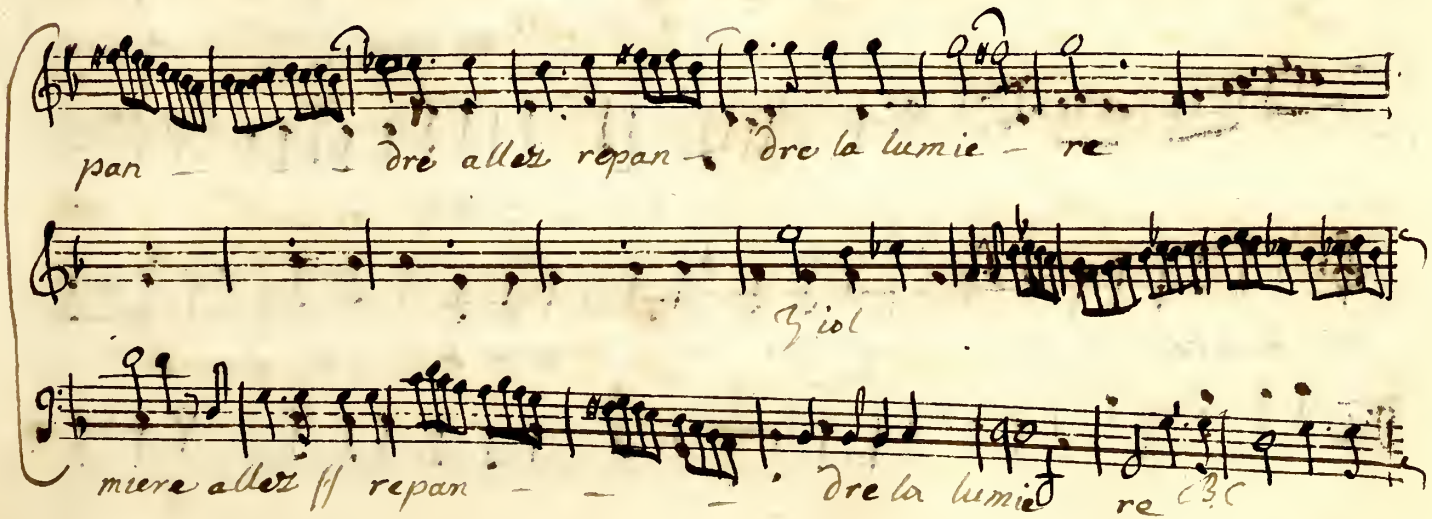 pan - - - dre allez repan - dre la lumie - re
Viol
miere allez // repan - - - dre la lumie re